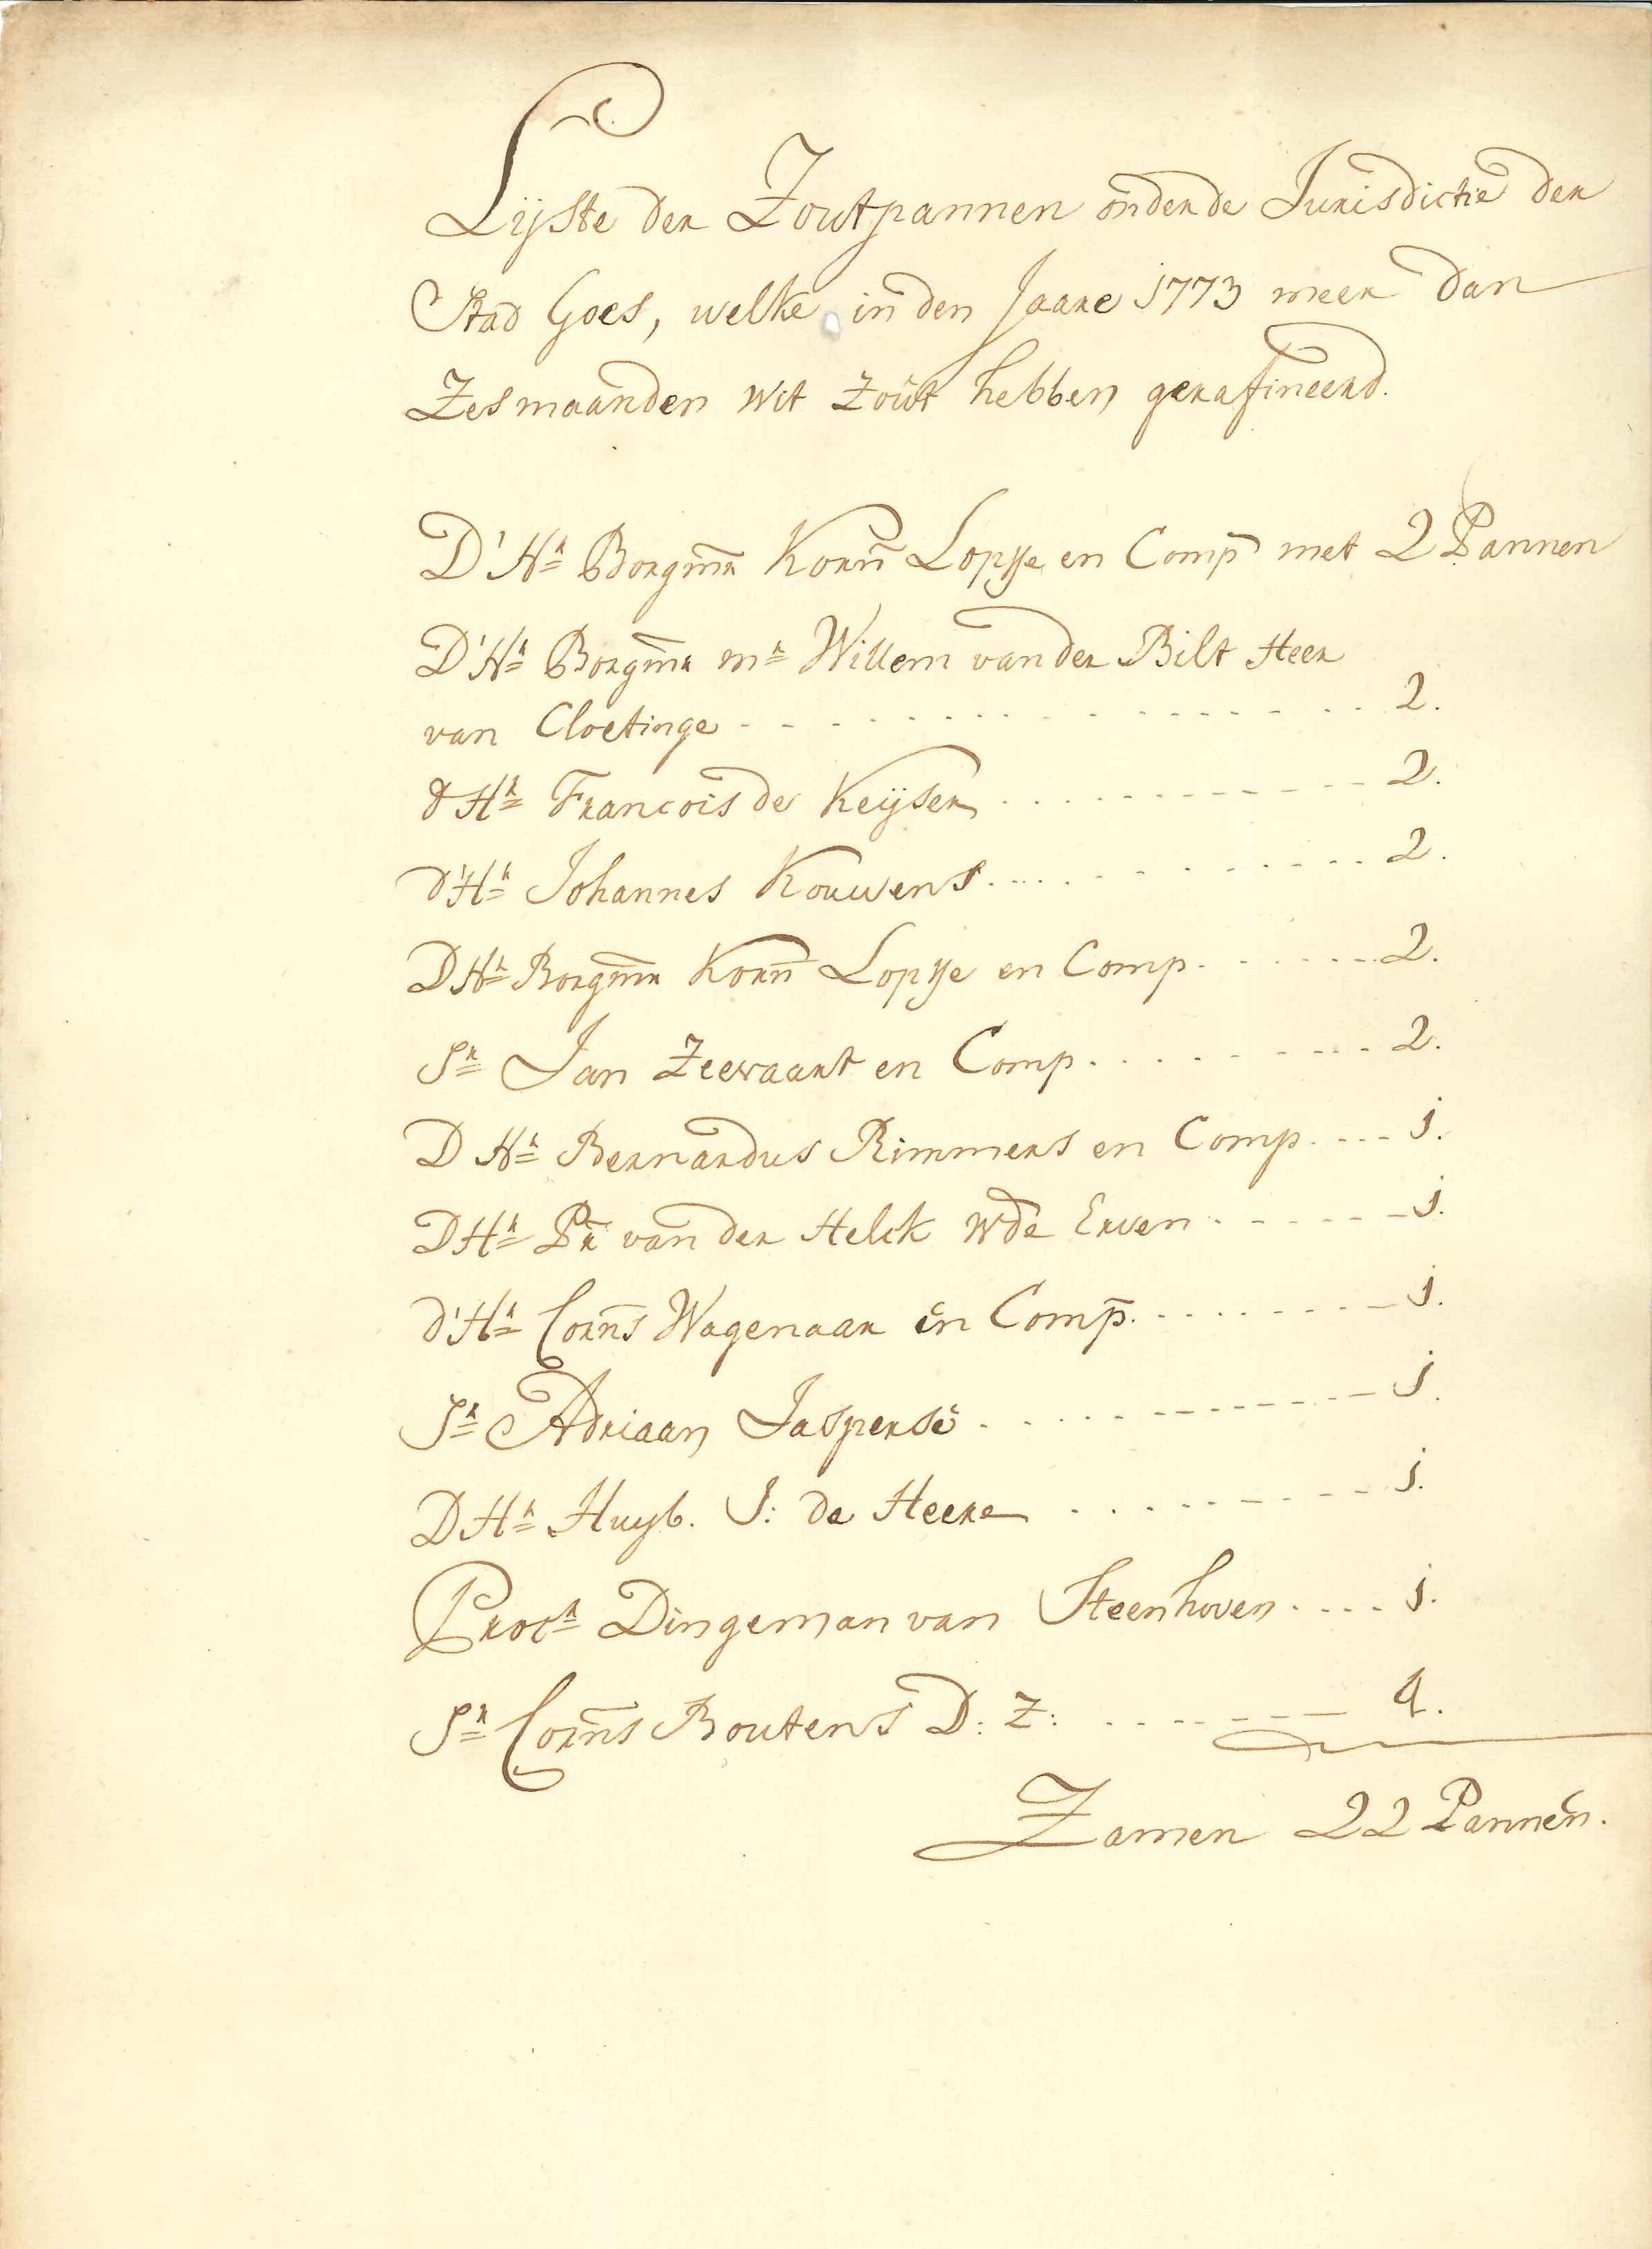 Lijste der Zoutpannen onder de Jurisdictie der
Stad Goes, welke in den Jaare 1773 meer dan
Zes maanden wit zout hebben gerafineerd.
D'Hr Borgmr Korn Lopse en Comp met 2 Pannen
D'Hr Borgmr mr Willem van der Bilt Heer
van Cloetinge - - - - - - - - - - 2.
d Hr Francois de Keyser - - - - - - - - - - 2.
d'Hr Johannes Kouwens - - - - - - - - - - 2.
D Hr Borgmr Korn Lopse en Comp. - - - - - - 2.
Sr Jan Zeevaart en Comp. - - - - - - - - 2.
D Hr Bernardus Rimmers en Comp. - - - 1.
D Hr Pr van der Helck wde Erven - - - - - - 1.
d'Hr Corns Wagenaar en Comp. - - - - - - - - 1.
Sr Adriaan Jasperse - - - - - - - - - - 1.
D Hr Huyb. J: de Heere - - - - - - - - - 1.
Procr Dingeman van Steenhoven - - - - 1.
Sr Corns Boutens D: Z: - - - - - - - 4.
Zamen 22 Pannen.